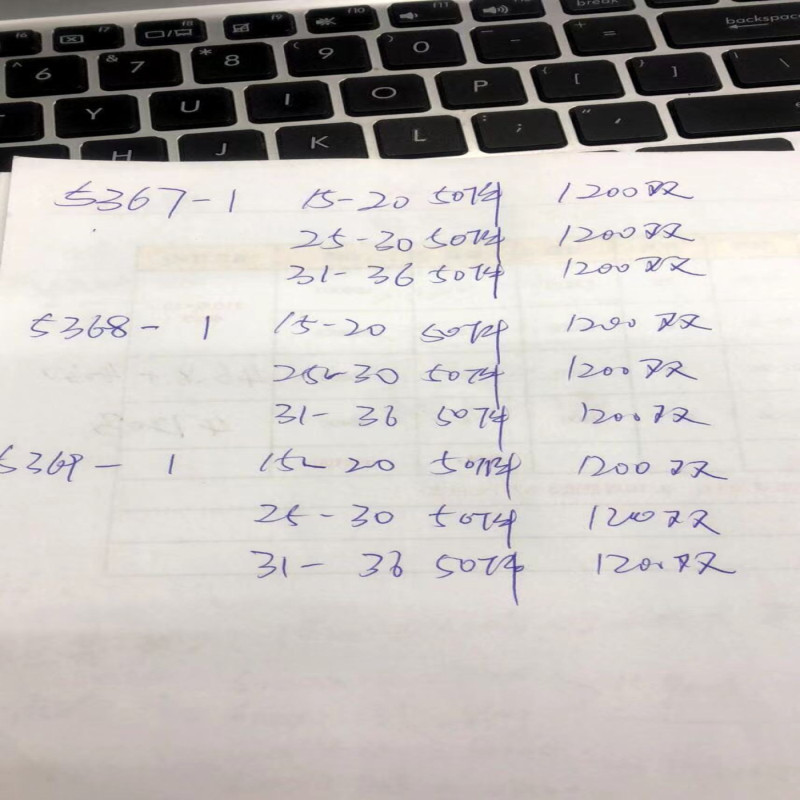 f6 f7 f8 f9 f10 f11 f12 break
^ 6 & 7 * 8 ( 9 ) 0 - + = backspace
Y U I O P { [ } ] \
H J K L : ; " '
5367-1 15-20 50件 1200双
25-30 50件 1200双
31-36 50件 1200双
5368-1 15-20 50件 1200双
25-30 50件 1200双
31-36 50件 1200双
5369-1 15-20 50件 1200双
25-30 50件 1200双
31-36 50件 1200双